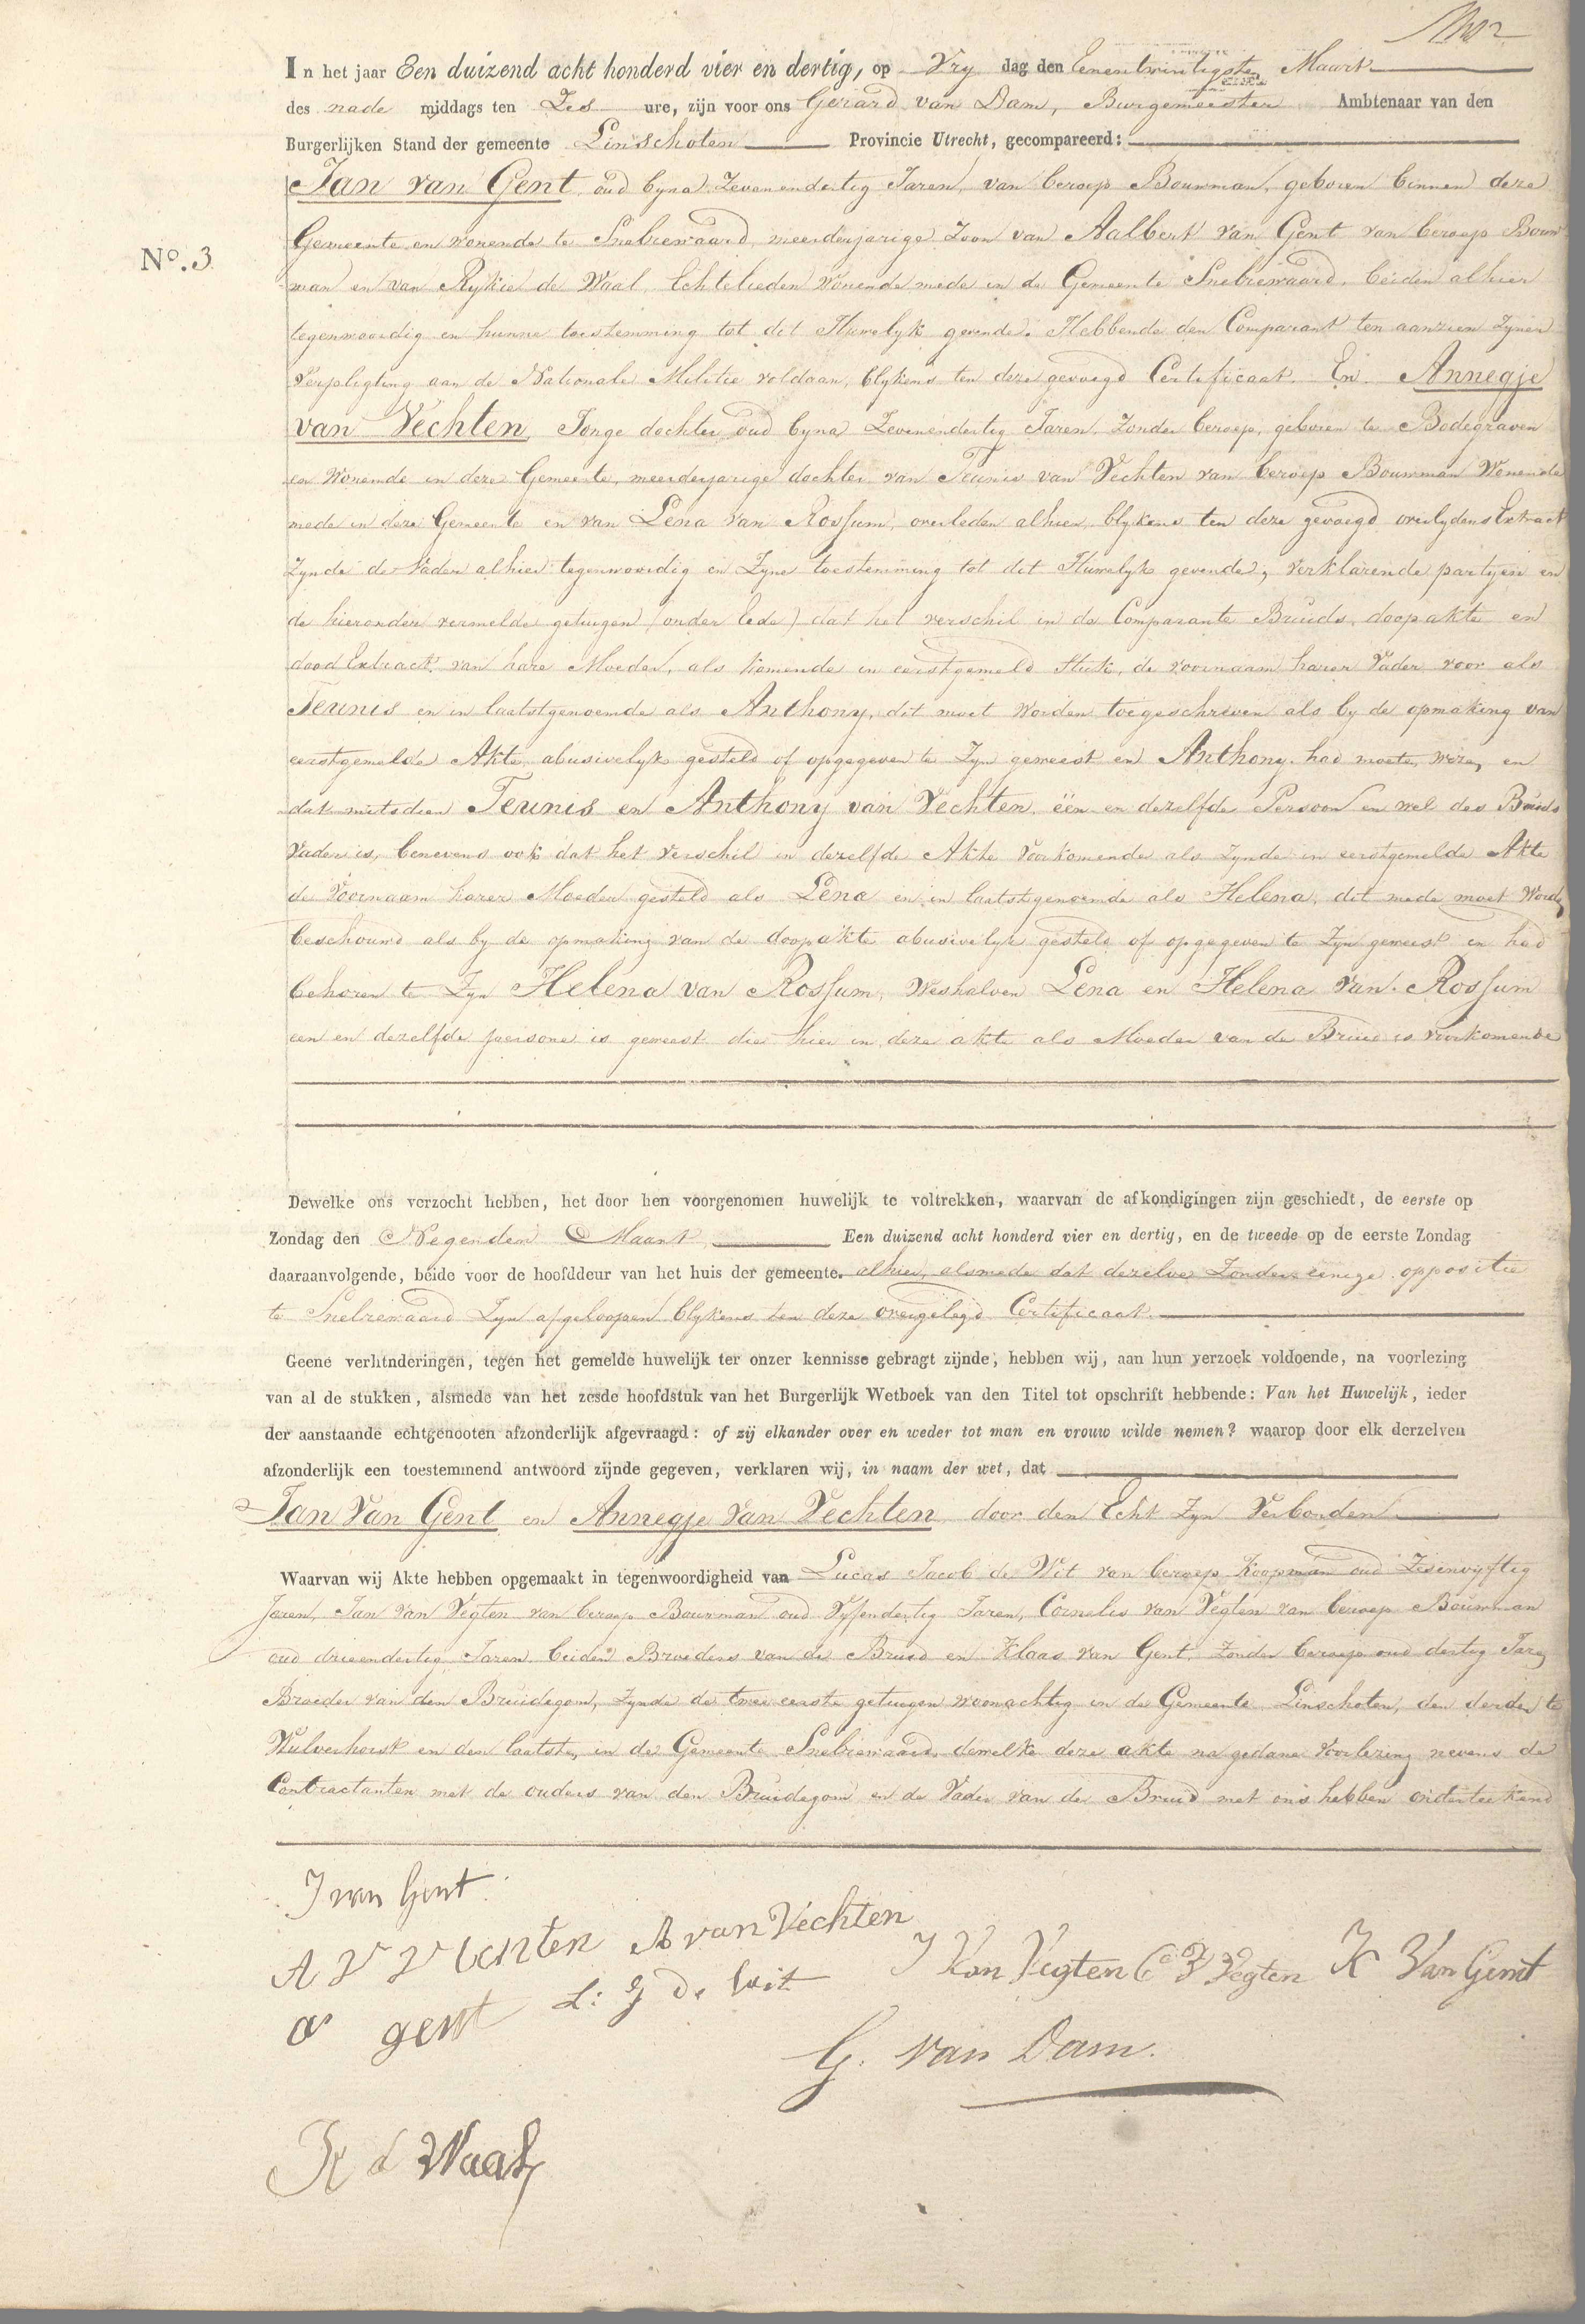 In het jaar Een duizend acht honderd vier en dertig, op Vry dag den Eenentwintigsten Maart
des nade middags ten Zes ure, zijn voor ons Gerard van Dam, Burgemeester Ambtenaar van den
Burgerlijken Stand der gemeente Linschoten Provincie Utrecht, gecompareerd:
Jan van Gent oud byna Zevenendertig Jaren, van beroep Bouwman, geboren binnen deze
Gemeente en wonende te Snelrewaard, meerderjarige Zoon van Aalbert van Gent van beroep Bouw
No. 3
man en van Rykie de Waal, Echtelieden Wonende mede in de Gemeente Snelrewaard, beiden alhier
tegenwoordig en hunne toestemming tot dit Huwelyk gevende. Hebbende den Comparant ten aanzien Zyner
Verpligting aan de Nationale Militie voldaan, blykens ten deze gevoegd Certificaat. En Annegje
van Vechten, Jonge dochter oud byna Zevenendertig Jaren, Zonder beroep, geboren te Bodegraven
en Wonende in deze Gemeente, meerderjarige dochter van Teunis van Vechten van beroep Bouwman Wonende
mede in deze Gemeente en van Lena van Rossum, overleden alhier, blykens ten deze gevoegd overlydens Extract
Zynde de Vader alhier tegenwoordig en Zyne toestemming tot dit Huwelyk gevende, verklarende partyen en
de hieronder vermelde getuigen (onder Eede) dat het verschil in de Comparante Bruids doopakte en
dood Extract van hare Moeder, als komende in eerstgemeld Stuk, de voornaam harer Vader voor als
Teunis en in laatstgenoemde als Anthony, dit moet worden toegeschreven als by de opmaking van
eerstgemelde Akte abusivelyk gesteld of opgegeven te Zyn geweest en Anthony had moeten wezen, en
dat mitsdien Teunis en Anthony van Vechten, één en dezelfde Persoon en wel des Bruids
Vader is, benevens ook dat het verschil in dezelfde Akte Voorkomende als Zynde in eerstgemelde Akte
de Voornaam harer Moeder gesteld als Lena en in laatstgenoemde als Helena, dit mede moet Worden
beschouwd als by de opmaking van de doopakte abusivelyk gesteld of opgegeven te Zyn geweest en had
behoren te Zyn Helena van Rossum, Weshalven Lena en Helena van Rossum
een en dezelfde persone is geweest die hier in deze akte als Moeder van de Bruid is voorkomende
Dewelke ons verzocht hebben, het door hen voorgenomen huwelijk te voltrekken, waarvan de afkondigingen zijn geschiedt, de eerste op
Zondag den Negenden Maart Een duizend acht honderd vier en dertig, en de tweede op de eerste Zondag
daaraanvolgende, beide voor de hoofddeur van het huis der gemeente. alhier, alsmede dat dezelve Zonder eenige oppositie
te Snelrewaard Zyn afgeloopen blykens ten deze overgelegd Certificaat.
Geene verhinderingen, tegen het gemelde huwelijk ter onzer kennisse gebragt zijnde, hebben wij, aan hun verzoek voldoende, na voorlezing
van al de stukken, alsmede van het zesde hoofdstuk van het Burgerlijk Wetboek van den Titel tot opschrift hebbende: Van het Huwelijk, ieder
der aanstaande echtgenooten afzonderlijk afgevraagd: of zij elkander over en weder tot man en vrouw wilde nemen? waarop door elk derzelven
afzonderlijk een toestemmend antwoord zijnde gegeven, verklaren wij, in naam der wet, dat
Jan Van Gent en Annegje Van Vechten door den Echt Zyn Verbonden
Waarvan wij Akte hebben opgemaakt in tegenwoordigheid van Lucas Jacob de Wit van beroep Koopman oud Zesenvyftig
Jaren, Jan Van Vegten van beroep Bouwman oud Vyfendertig Jaren, Cornelis van Vegten van beroep Bouwman
oud drieendertig Jaren, beiden Broeders van de Bruid en Klaas van Gent, Zonder beroep oud dertig Jaren
Broeder van den Bruidegom, Zynde de twee eerste getuigen woonachtig in de Gemeente Linschoten, den derden te
Wulverhorst en den laatsten in de Gemeente Snelrewaard, dewelke deze akte na gedane Voorlezing nevens de
Contractanten met de ouders van den Bruidegom en de Vader van de Bruid met ons hebben onderteekend
J van Gent
A V Vechten A van Vechten J Van Vegten C V Vegten K Van Gent
gent L: J De Wit
G. van Dam.
R d Waal